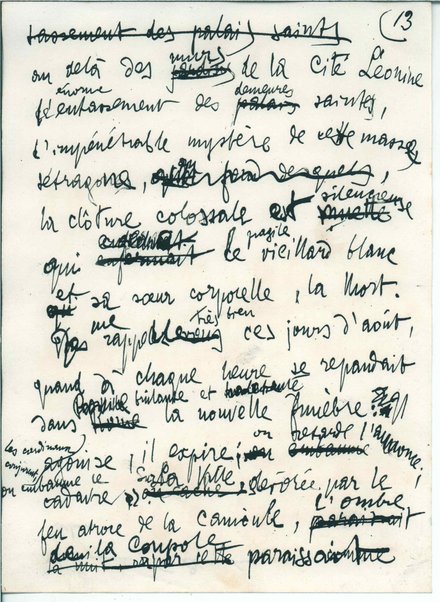 (13
sassement des palais saints
au delà des murs de la Cité Léonine
l'énorme entassement des demeures palais saintes,
l'impénétrable mystère de cette masse
tétragone, au fond desquels,
la clôture colossale et silencieuse muette
qui enfermait le fragile vieillard blanc
et sa sœur corporelle, la Mort.
Je me rappelle très bien ces jours d'août,
quand à chaque heure se répandait
dans Rome brûlante et la nouvelle funèbre : Il
agonise, il expire ; on retarde l'annonce ;
Les cardinaux
on embaume le
cadavre la ville, dévorée par le
feu atroce de la canicule, l'ombre paraissait
de la Coupole
paraissait